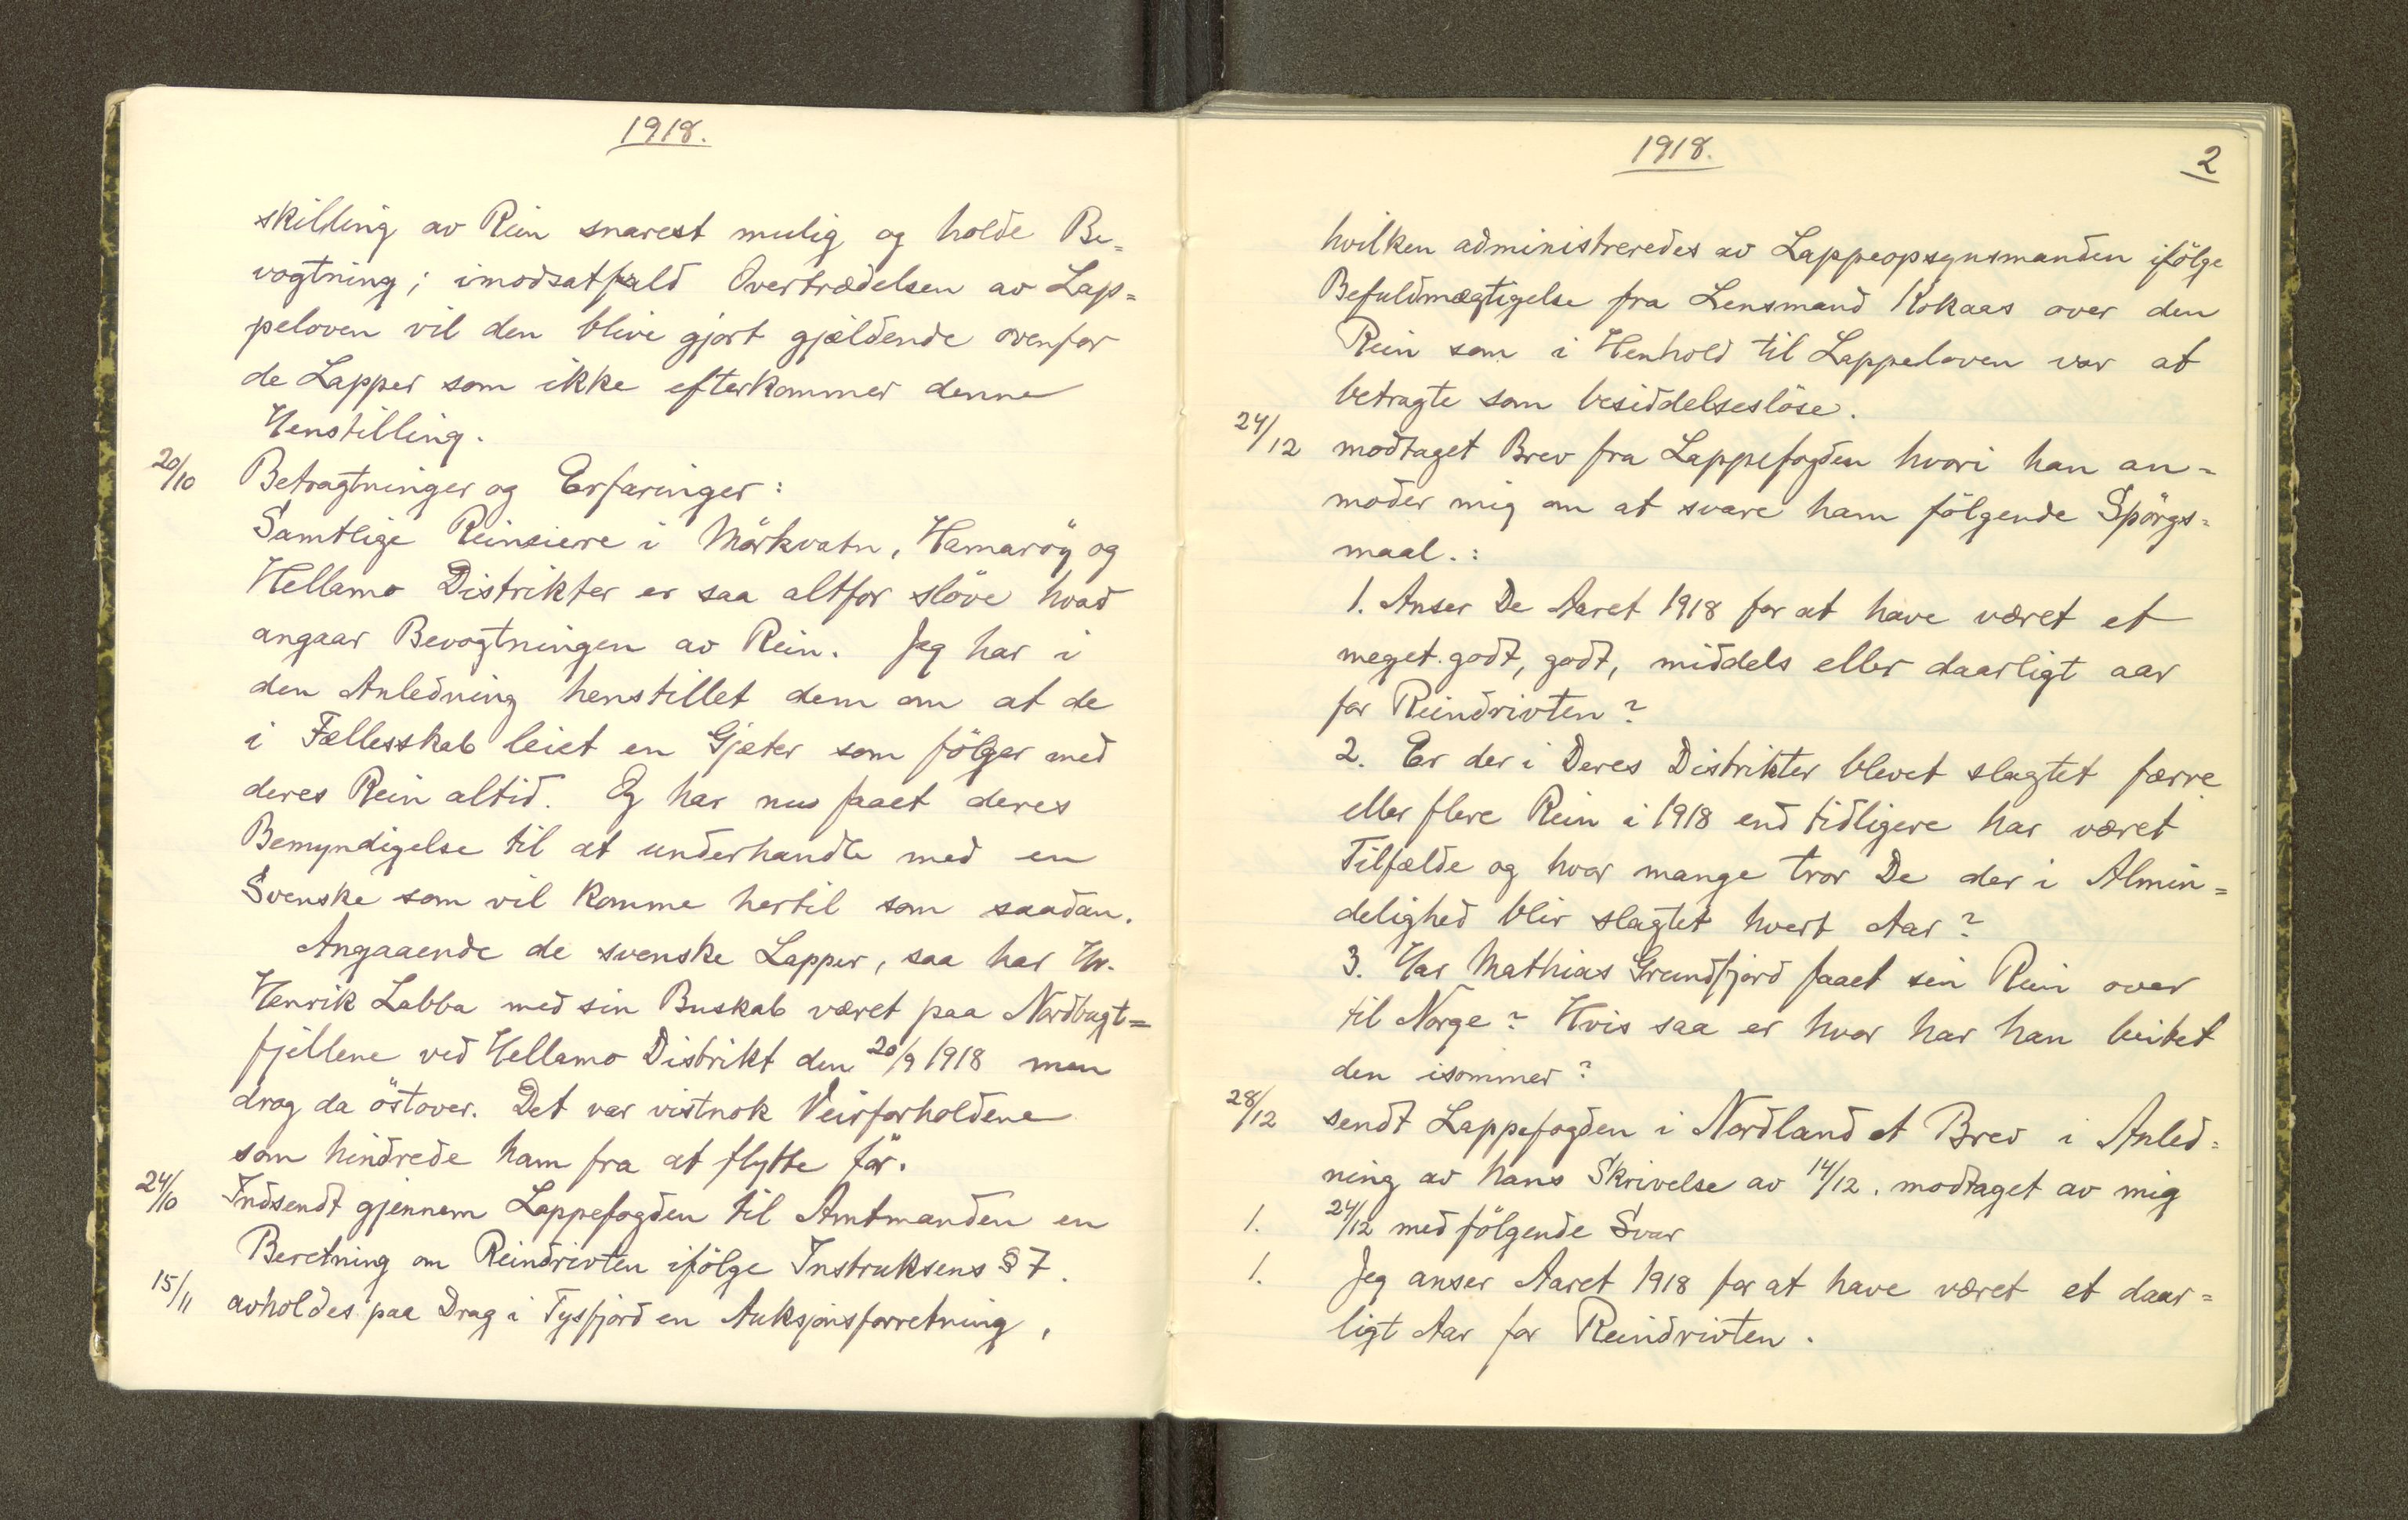 1918.
skilling av Rein snarest mulig og holde Be=
vogtning; imodsatfald Overtrædelsen av Lap=
peloven vil den blive gjort gjældende ovenfor
de Lapper som ikke efterkommer denne
Henstilling.
20/10 Betragtninger og Erfaringer:
Samtlige Reineiere i Mörkvatn, Hamaröy og
Hellamo Distrikter er saa altfor slöve hvad
angaar Bevogtningen av Rein. Jeg har i
den Anledning henstillet dem om at de
i Fællesskab leiet en Gjæter som fölger med
deres Rein altid. Og har nu faaet deres
Bemyndigelse til at underhandle med en
Svenske som vil komme hertil som saadan.
Angaaende de svenske Lapper, saa har Hr.
Henrik Labba med sin Buskab været paa Nordbugt=
fjellene ved Hellamo Distrikt den 20/9 1918 men
drog da östover. Det var vistnok Veirforholdene
som hindrede ham fra at flytte för.
24/10 Indsendt gjennem Lappefogden til Amtmanden en
Beretning om Reindrivten ifölge Instruksens § 7.
15/11 avholdes paa Drag i Tysfjord en Auksjonsforretning,
1918.
2
hvilken administreredes av Lappeopsynsmanden ifölge
Befuldmægtigelse fra Lensmand Kokaas over den
Rein som i Henhold til Lappeloven var at
betragte som besiddelseslöse.
24/12 modtaget Brev fra Lappefogden hvori han an=
moder mig om at svare ham fölgende Spörgs=
maal.:
1. Anser De Aaret 1918 for at have været et
meget godt, godt, middels eller daarligt aar
for Reindrivten?
2. Er der i Deres Distrikter blevet slagtet færre
eller flere Rein i 1918 end tidligere har været
Tilfælde og hvor mange tror De der i Almin=
delighed blir slagtet hvert Aar?
3. Har Mathias Grundfjord faaet sin Rein over
til Norge? Hvis saa er hvor har han beitet
den isommer?
28/12 sendt Lappefogden i Nordland et Brev i Anled=
ning av hans Skrivelse av 14/12. modtaget av mig
1. 24/12 med fölgende Svar
1. Jeg anser Aaret 1918 for at have været et daar=
ligt Aar for Reindrivten.